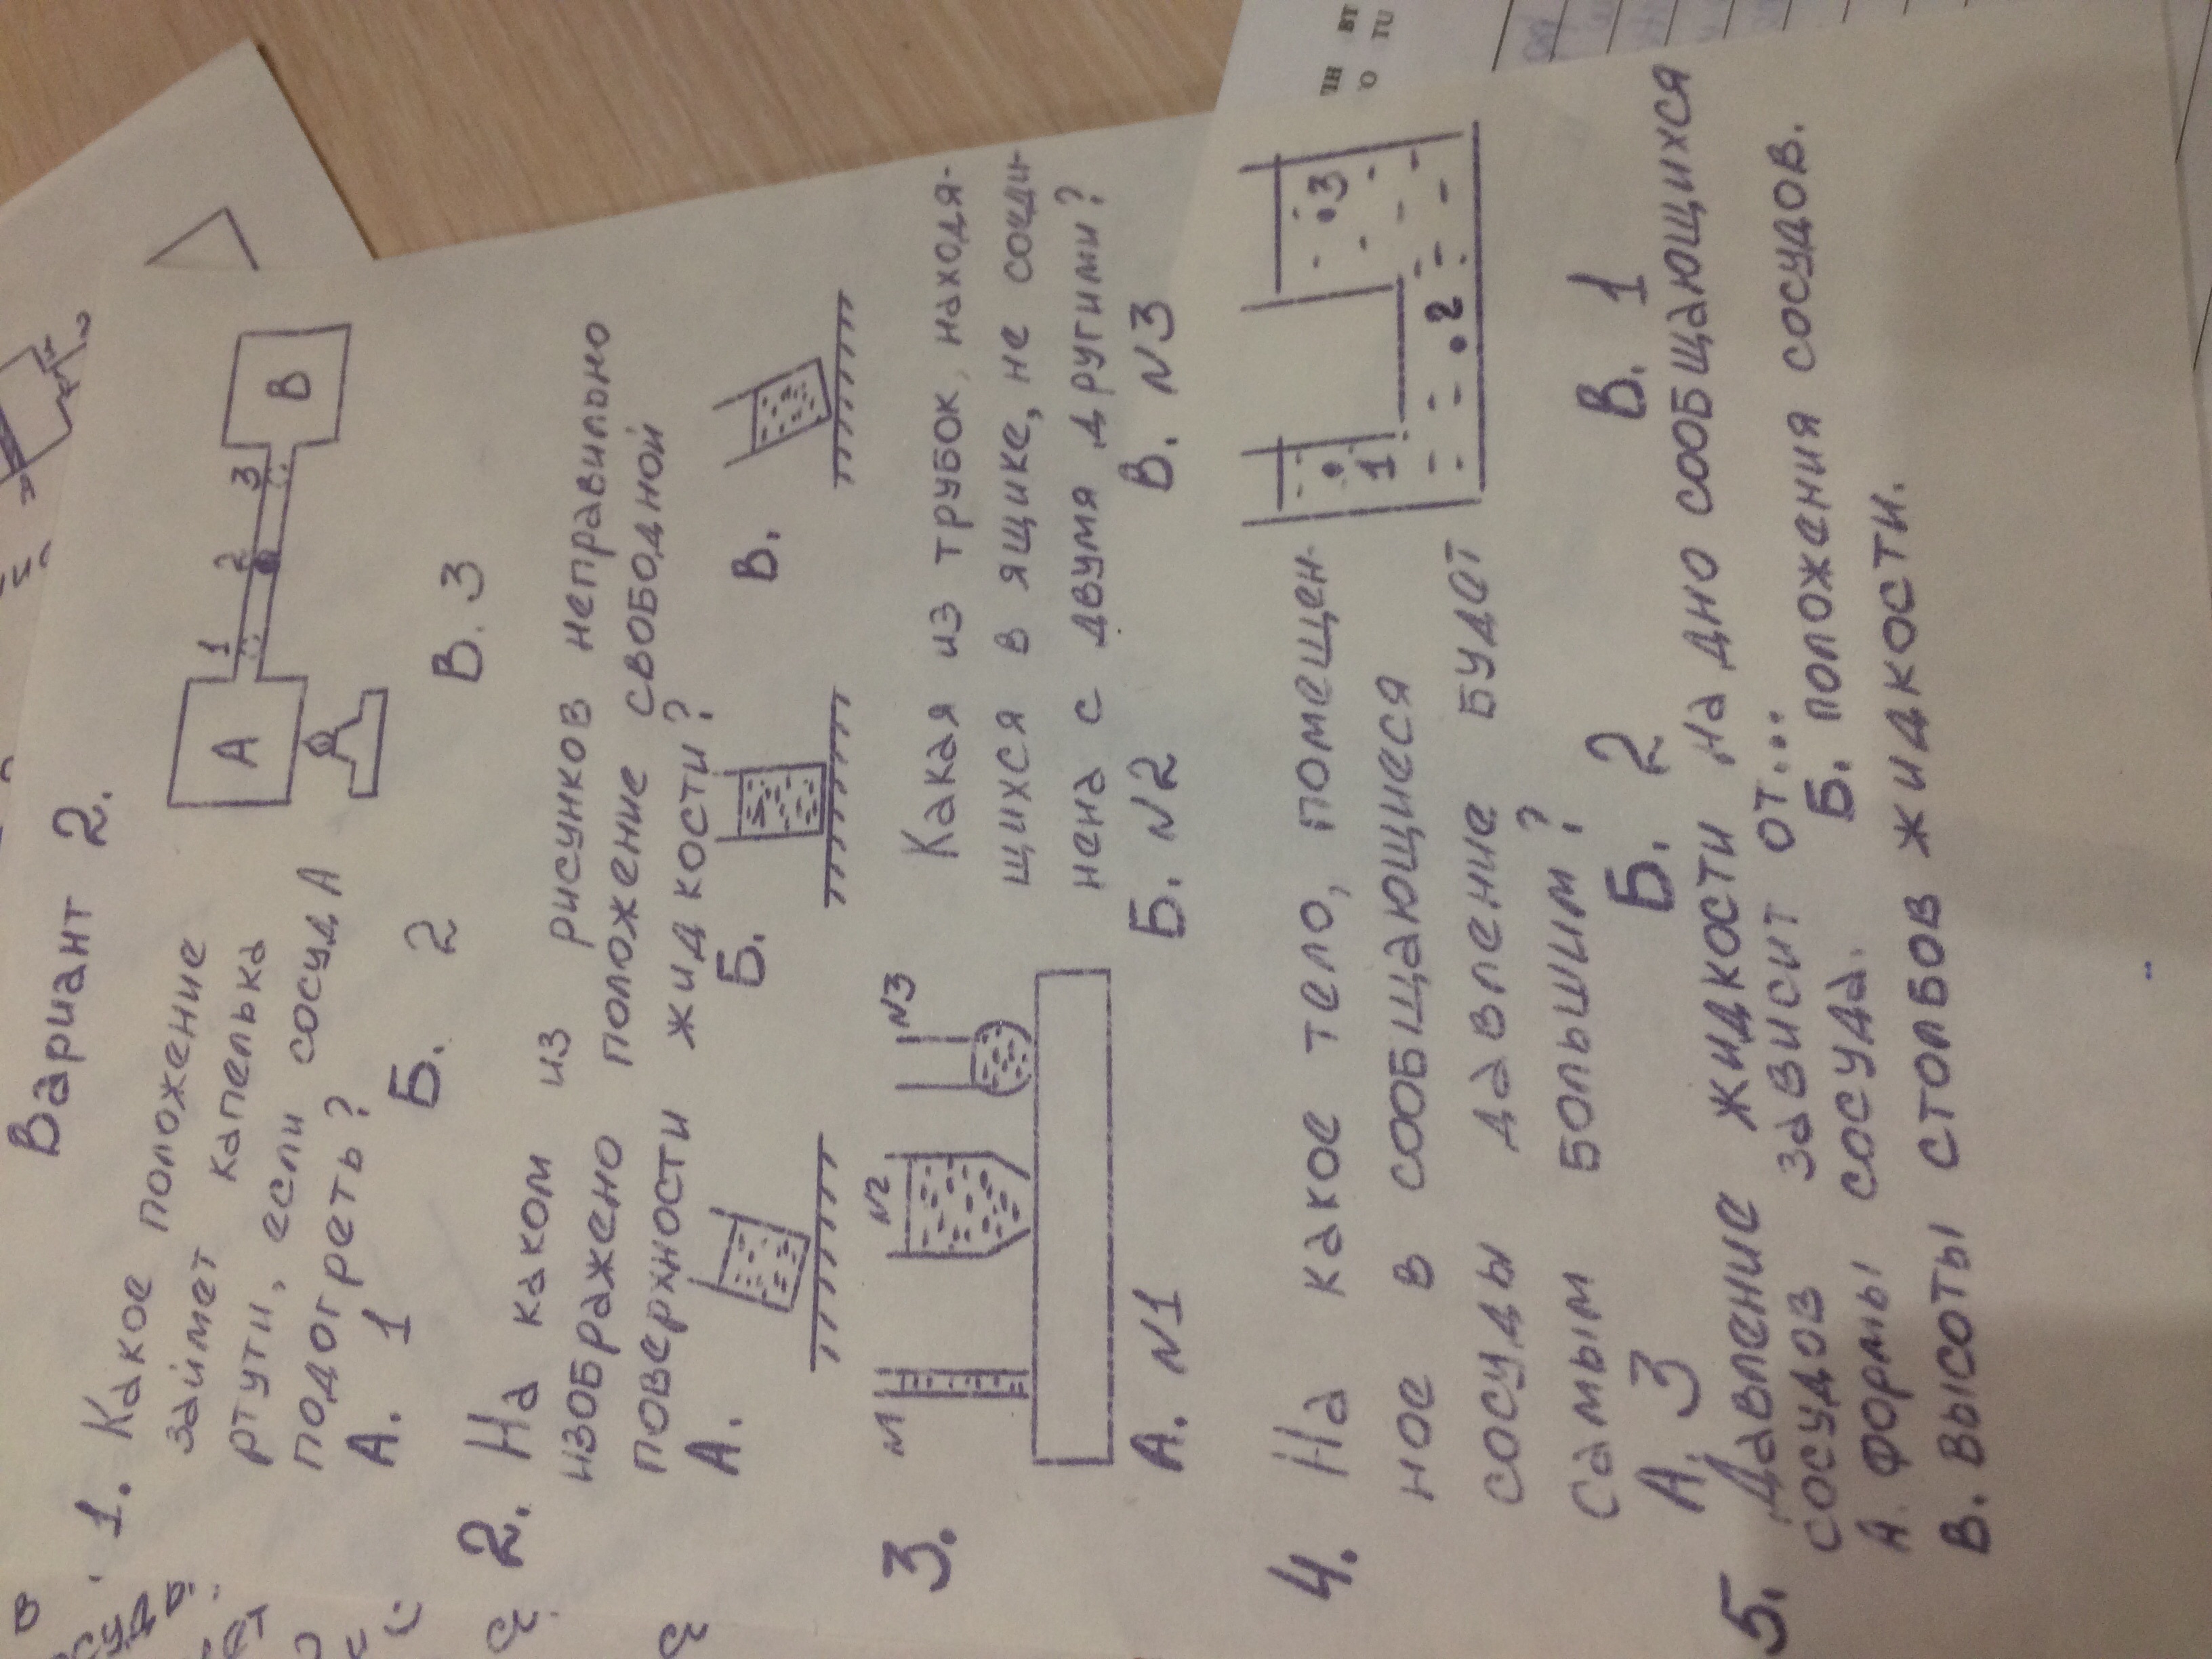 Вариант 2.
1. Какое положение
займет капелька
ртути, если сосуд А
подогреть?
А. 1 Б. 2 В. 3
1 2 3
А В
2. На каком из рисунков неправильно
изображено положение свободной
поверхности жидкости?
А. Б. В.
3. Какая из трубок, находя-
щихся в ящике, не соеди-
нена с двумя другими?
N1 N2 N3
А. N1 Б. N2 В. N3
4. На какое тело, помещен-
ное в сообщающиеся
сосуды давление будет
самым большим?
1 2 3
А. 3 Б. 2 В. 1
5. Давление жидкости на дно сообщающихся
сосудов зависит от...
А. формы сосуда. Б. положения сосудов.
В. высоты столбов жидкости.